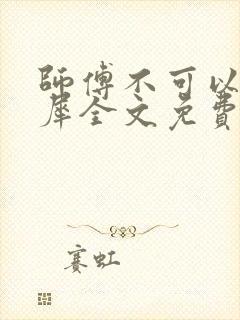 師傅不可以
犀全文免費
赛虹